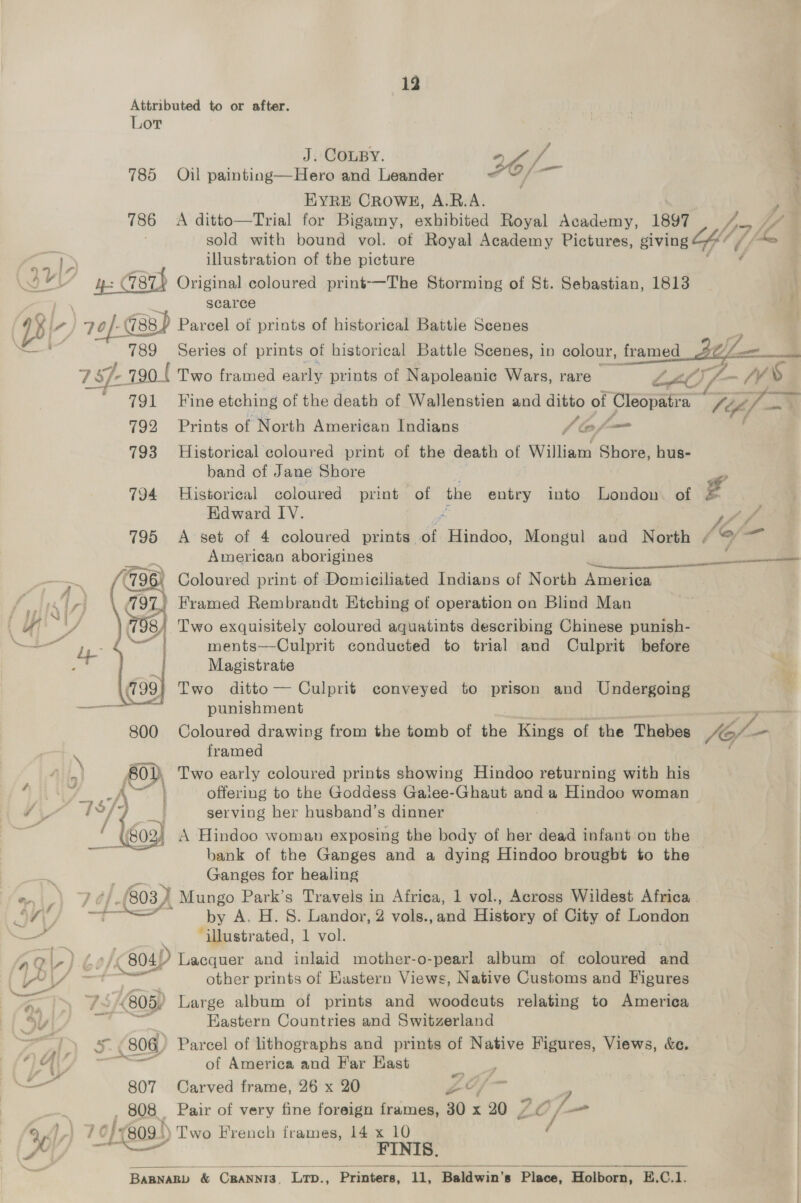 12
Attributed to or after.
LOT
J. COLBY.
785 Oil painting—Hero and Leander 26/—
EYRE CROWE, A.R.A.
786 A ditto—Trial for Bigamy, exhibited Royal Academy, 1897
sold with bound vol. of Royal Academy Pictures, giving
illustration of the picture
787 Original coloured print—The Storming of St. Sebastian, 1813
scarce
70/- 788 Parcel of prints of historical Battle Scenes
789 Series of prints of historical Battle Scenes, in colour, framed
75/- 790 Two framed early prints of Napoleanic Wars, rare
791 Fine etching of the death of Wallenstien and ditto of Cleopatra
792 Prints of North American Indians
793 Historical coloured print of the death of William Shore, hus-
band of Jane Shore
794 Historical coloured print of the entry into London of
Edward IV.
795 A set of 4 coloured prints of Hindoo, Mongul and North
American aborigines
796 Coloured print of Domiciliated Indians of North America
797 Framed Rembrandt Etching of operation on Blind Man
798 Two exquisitely coloured aquatints describing Chinese punish-
ments—Culprit conducted to trial and Culprit before
Magistrate
799 Two ditto — Culprit conveyed to prison and Undergoing
punishment
800 Coloured drawing from the tomb of the Kings of the Thebes
framed
801 Two early coloured prints showing Hindoo returning with his
offering to the Goddess Galee-Ghaut and a Hindoo woman
75/- serving her husband's dinner
802 A Hindoo woman exposing the body of her dead infant on the
bank of the Ganges and a dying Hindoo brought to the
Ganges for healing
70/- 803 Mungo Park's Travels in Africa, 1 vol., Across Wildest Africa
by A. H. S. Landor, 2 vols., and History of City of London
illustrated, 1 vol.
60/- 804 Lacquer and inlaid mother-o-pearl album of coloured and
other prints of Eastern Views, Native Customs and Figures
75/- 805 Large album of prints and woodcuts relating to America
Eastern Countries and Switzerland
5- 806 Parcel of lithographs and prints of Native Figures, Views, &c.
of America and Far East
807 Carved frame, 26 x 20 20/-
808 Pair of very fine foreign frames, 30 x 20 20/-
70/- 809 Two French frames, 14 x 10
FINIS.
BARNARD & CRANNIS, LTD., Printers, 11, Baldwin's Place, Holborn, E.C.1.